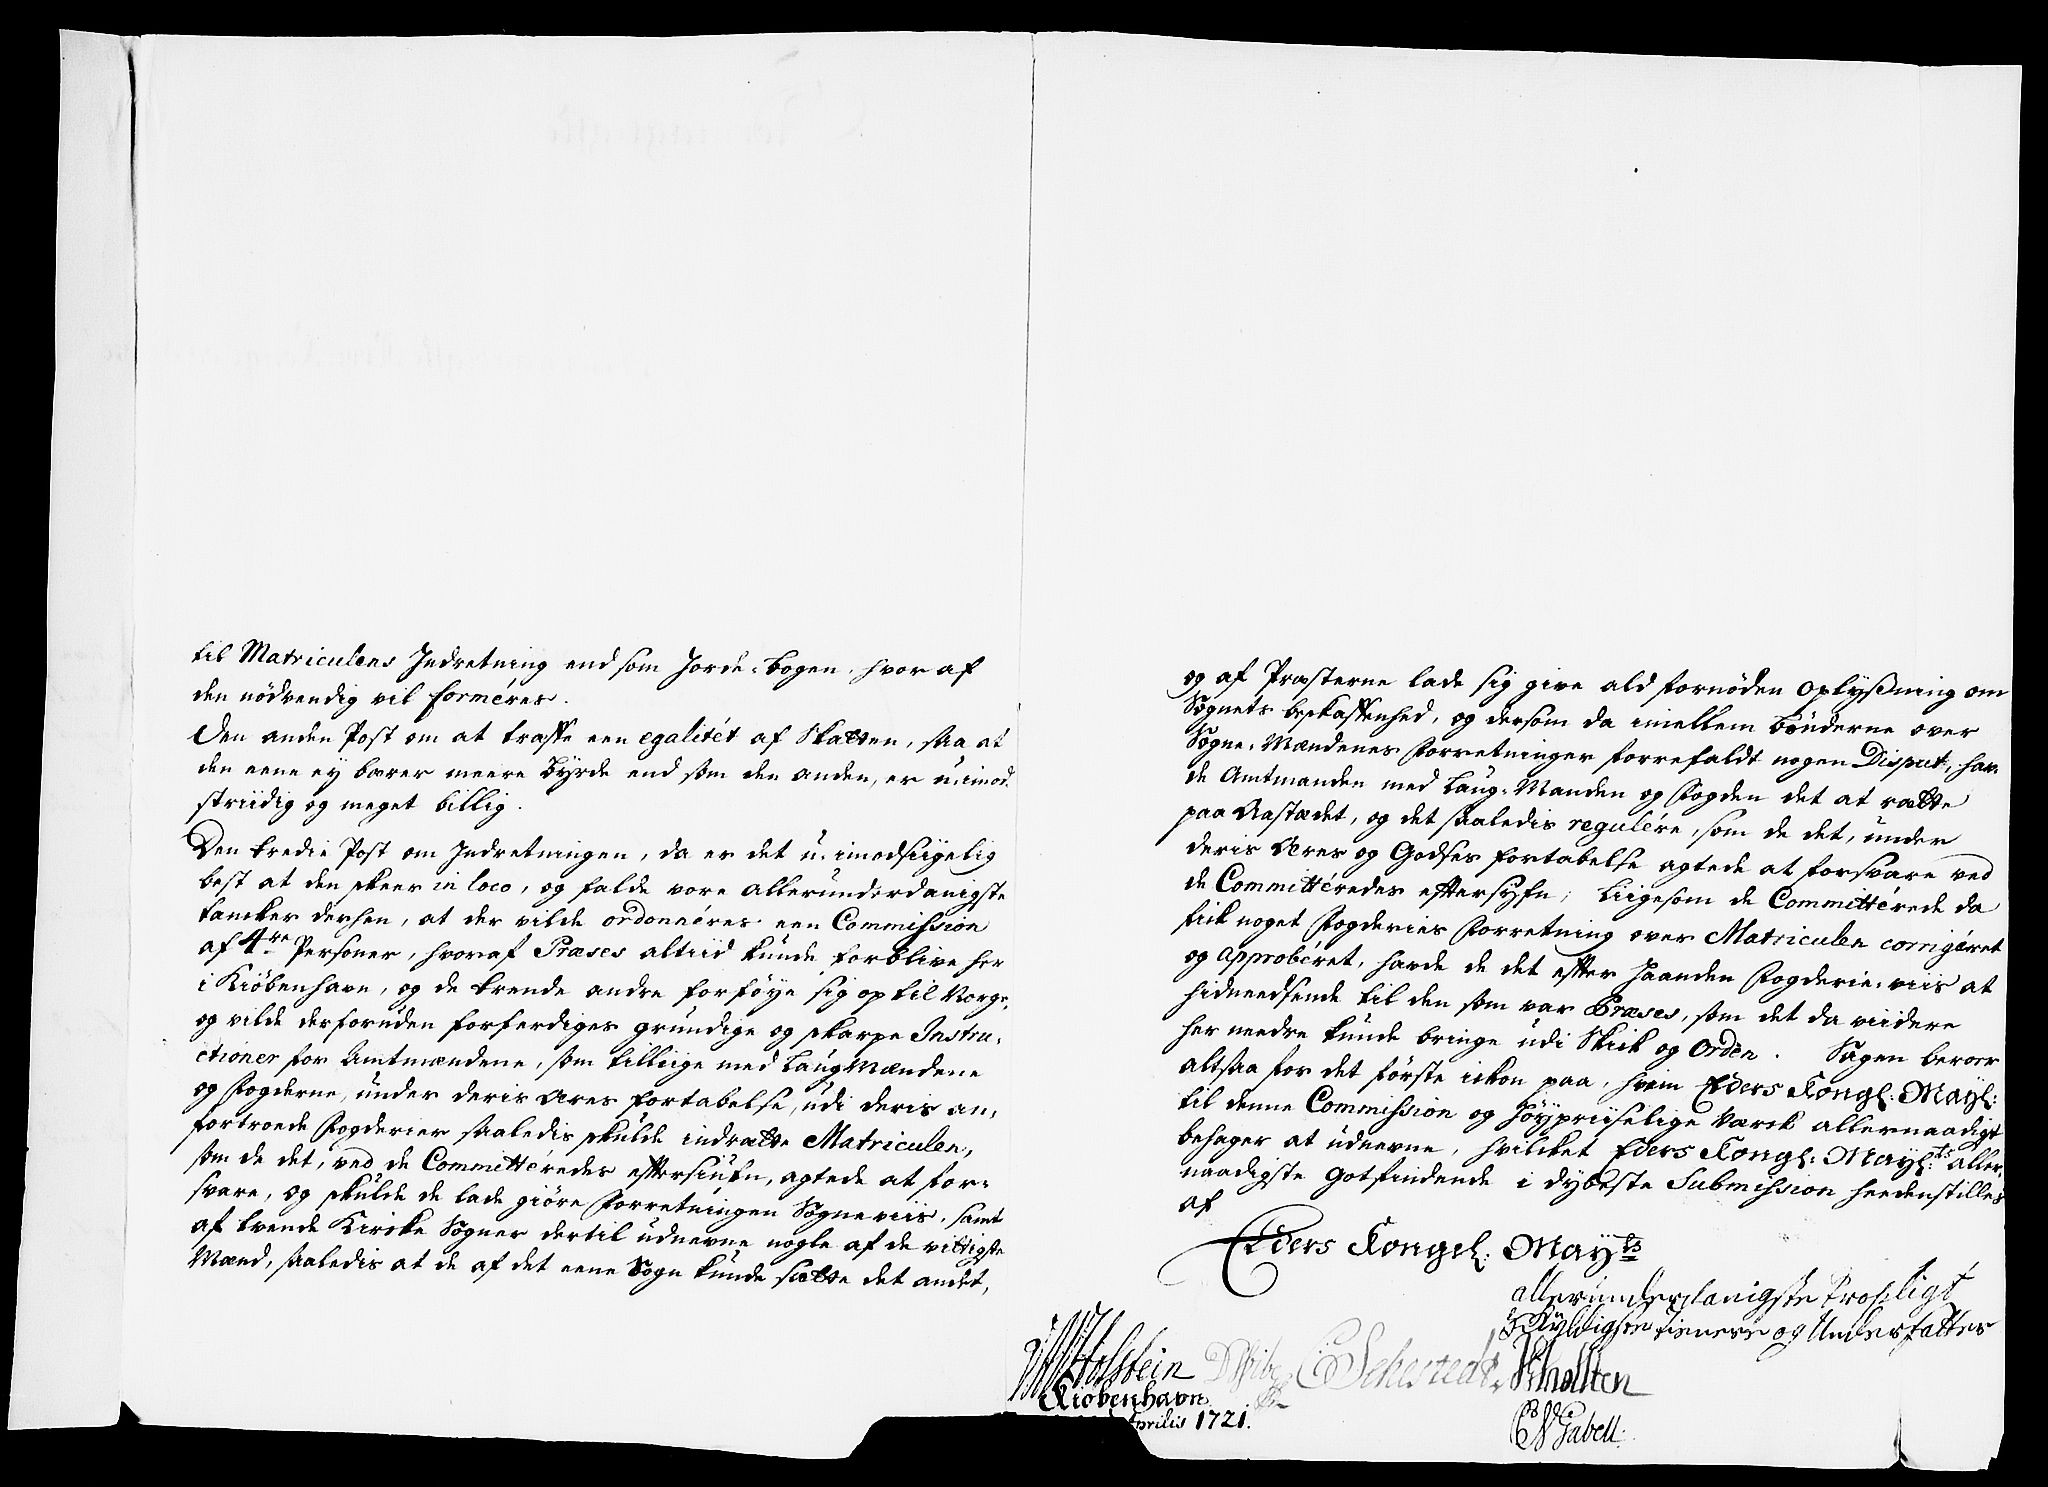 til Matriculens Indretning end som Jorde-bogen, hvoraf
den nödvendig vil forméres.
Den anden Post om at traffe een egalitét af Skatten, saa at
den eene ey barer meere Byrde end som den anden, er u-imod-
striidig og meget billig.
Den tredie Post om Indretningen, da er det u-imodsiigelig
best at den skeer in loco, og falde vore allerunderdanigste
tancker derhen, at der vilde ordonnéres een Commission
af 4re Personer, hvoraf Præses altiid kunde forblive her
i Kiöbenhavn, og de trende andre forföye sig op til Norge,
og vilde derforuden forferdiges grundige og skarpe Instru-
ctioner for Amtmændene, som tilliige med LaugMændene
og Fogderne, under deris Æres fortabelse, udi deris an-
fortroede Fogderier saaledis skulde indrætte Matriculen,
som de det, ved de Committéredes eftersiufn, agtede at for-
svare, og skulde de lade giöre Forretningen Sogneviis, samt
af tvende Kirke Sogner dertil udnevne nogle af de vittigste
Mænd, saaledis at de af det eene Sogn kunde sætte det andet,
og af Præsterne lade sig give ald fornöden Oplysning om
Sognets beskaffenhed, og dersom da imellem bönderne over
Sogne-Mændenes Forretninger forrefaldt nogen Disput, hav-
de Amtmanden med Laug-Manden og Fogden det at rætte
paa Aastædet, og det saaledis regulére, som de det, under
deris Ære og Godses fortabelse agtede at forsvare ved
de Committéredes eftersyfn; Liigesom de Committérede da
fick noget Fogderies Forretning over Matriculen corrigéret
og approbéret, havde de det efter haanden Fogderie-viis at
hidneedsende til den som var Præses, som det da viidere
her needre kunde bringe udi Skick og Orden. Sagen beroer
altsaa for det förste ickon paa, hvem Eders Kongl: Mayt:
til denne Commission og höypriiselige Værck allernaadigst
behager at udnevne, hvilcket Eders Kongl: Mayts: aller-
naadigste Gotfindende i dybeste Submission heedenstilles
af
Eders Kongl: Mayts
allerunderdanigste Tropligt
Skyldigste Tienere og Undersatter
Holstein DWibe CSehestedt JvHolsten
Kiöbenhavn
Aprilis 1721.
CGabell: